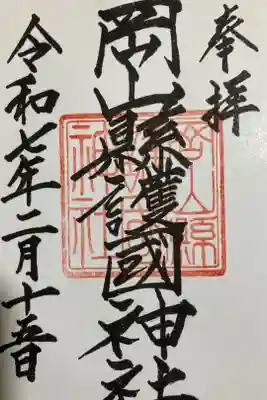 奉拝
岡山縣護國神社
令和七年二月十五日